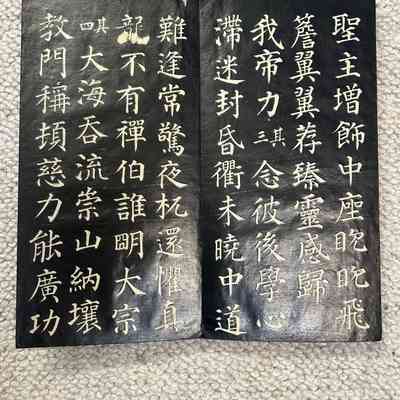 聖主增飾中座眈眈飛
簷翼翼荐臻靈感歸
我帝力其三念彼後學心
滯迷封昏衢未曉中道
難逢常驚夜杌還懼真
龍不有禪伯誰明大宗
其四大海吞流崇山納壤
教門稱頓慈力能廣功